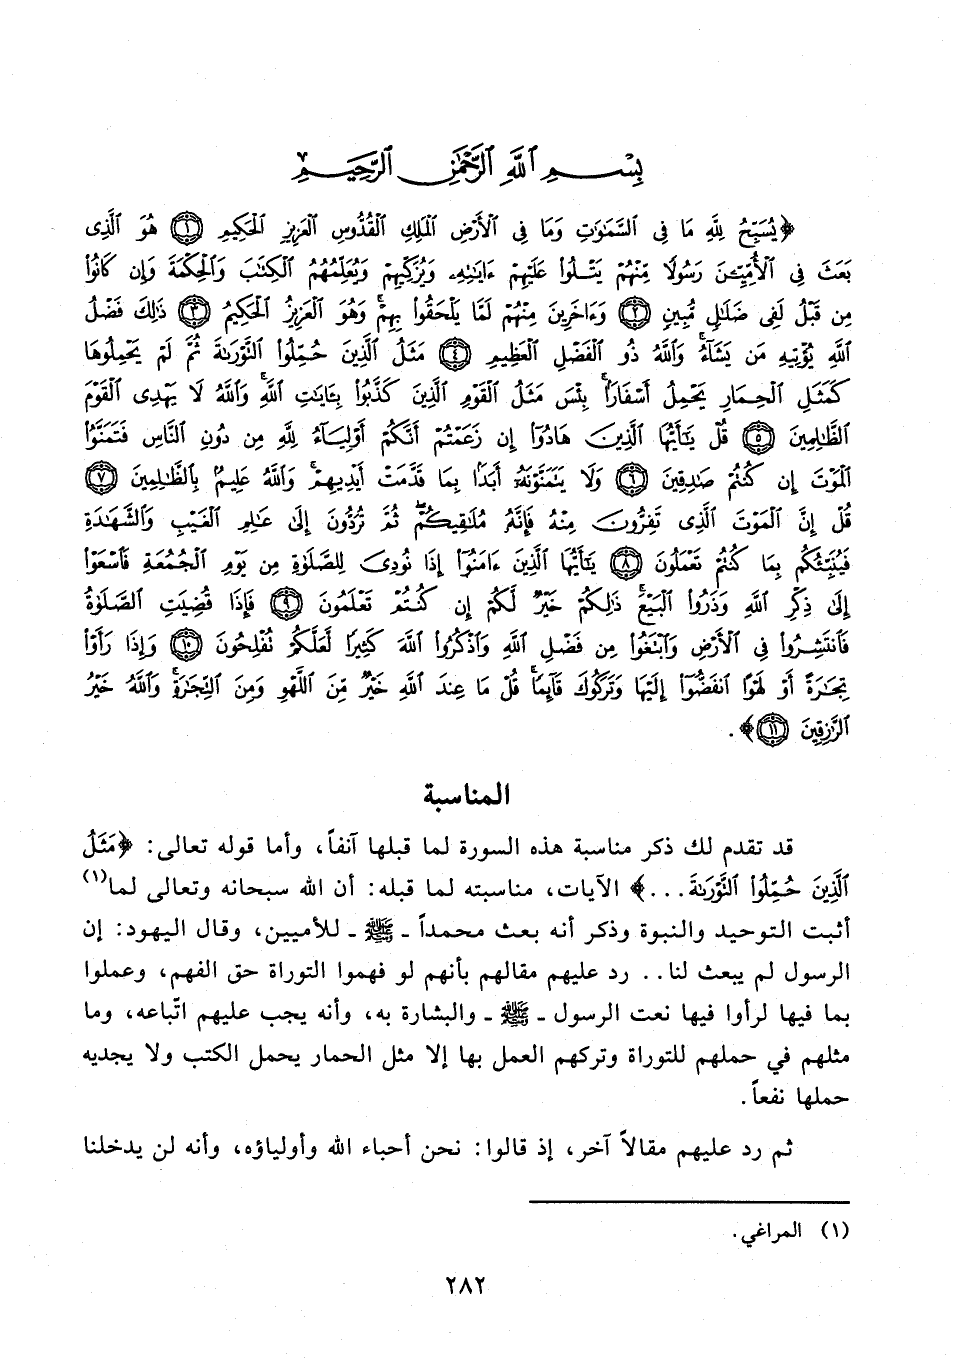 بِسْمِ ٱللَّهِ ٱلرَّحْمَٰنِ ٱلرَّحِيمِ
﴿يُسَبِّحُ لِلَّهِ مَا فِي ٱلسَّمَٰوَٰتِ وَمَا فِي ٱلْأَرْضِ ٱلْمَلِكِ ٱلْقُدُّوسِ ٱلْعَزِيزِ ٱلْحَكِيمِ ١ هُوَ ٱلَّذِي
بَعَثَ فِي ٱلْأُمِّيِّـۧنَ رَسُولًا مِّنْهُمْ يَتْلُوا۟ عَلَيْهِمْ ءَايَٰتِهِۦ وَيُزَكِّيهِمْ وَيُعَلِّمُهُمُ ٱلْكِتَٰبَ وَٱلْحِكْمَةَ وَإِن كَانُوا۟
مِن قَبْلُ لَفِي ضَلَٰلٍ مُّبِينٍ ٢ وَءَاخَرِينَ مِنْهُمْ لَمَّا يَلْحَقُوا۟ بِهِمْ ۚ وَهُوَ ٱلْعَزِيزُ ٱلْحَكِيمُ ٣ ذَٰلِكَ فَضْلُ
ٱللَّهِ يُؤْتِيهِ مَن يَشَآءُ ۚ وَٱللَّهُ ذُو ٱلْفَضْلِ ٱلْعَظِيمِ ٤ مَثَلُ ٱلَّذِينَ حُمِّلُوا۟ ٱلتَّوْرَىٰةَ ثُمَّ لَمْ يَحْمِلُوهَا
كَمَثَلِ ٱلْحِمَارِ يَحْمِلُ أَسْفَارًۢا ۚ بِئْسَ مَثَلُ ٱلْقَوْمِ ٱلَّذِينَ كَذَّبُوا۟ بِـَٔايَٰتِ ٱللَّهِ ۚ وَٱللَّهُ لَا يَهْدِي ٱلْقَوْمَ
ٱلظَّٰلِمِينَ ٥ قُلْ يَٰٓأَيُّهَا ٱلَّذِينَ هَادُوٓا۟ إِن زَعَمْتُمْ أَنَّكُمْ أَوْلِيَآءُ لِلَّهِ مِن دُونِ ٱلنَّاسِ فَتَمَنَّوُا۟
ٱلْمَوْتَ إِن كُنتُمْ صَٰدِقِينَ ٦ وَلَا يَتَمَنَّوْنَهُۥٓ أَبَدًۢا بِمَا قَدَّمَتْ أَيْدِيهِمْ ۚ وَٱللَّهُ عَلِيمٌۢ بِٱلظَّٰلِمِينَ ٧
قُلْ إِنَّ ٱلْمَوْتَ ٱلَّذِي تَفِرُّونَ مِنْهُ فَإِنَّهُۥ مُلَٰقِيكُمْ ۖ ثُمَّ تُرَدُّونَ إِلَىٰ عَٰلِمِ ٱلْغَيْبِ وَٱلشَّهَٰدَةِ
فَيُنَبِّئُكُم بِمَا كُنتُمْ تَعْمَلُونَ ٨ يَٰٓأَيُّهَا ٱلَّذِينَ ءَامَنُوٓا۟ إِذَا نُودِيَ لِلصَّلَوٰةِ مِن يَوْمِ ٱلْجُمُعَةِ فَٱسْعَوْا۟
إِلَىٰ ذِكْرِ ٱللَّهِ وَذَرُوا۟ ٱلْبَيْعَ ۚ ذَٰلِكُمْ خَيْرٌ لَّكُمْ إِن كُنتُمْ تَعْلَمُونَ ٩ فَإِذَا قُضِيَتِ ٱلصَّلَوٰةُ
فَٱنتَشِرُوا۟ فِي ٱلْأَرْضِ وَٱبْتَغُوا۟ مِن فَضْلِ ٱللَّهِ وَٱذْكُرُوا۟ ٱللَّهَ كَثِيرًا لَّعَلَّكُمْ تُفْلِحُونَ ١٠ وَإِذَا رَأَوْا۟
تِجَٰرَةً أَوْ لَهْوًا ٱنفَضُّوٓا۟ إِلَيْهَا وَتَرَكُوكَ قَآئِمًا ۚ قُلْ مَا عِندَ ٱللَّهِ خَيْرٌ مِّنَ ٱللَّهْوِ وَمِنَ ٱلتِّجَٰرَةِ ۚ وَٱللَّهُ خَيْرُ
ٱلرَّٰزِقِينَ ١١﴾.
المناسبة
قد تقدم لك ذكر مناسبة هذه السورة لما قبلها آنفاً، وأما قوله تعالى: ﴿مَثَلُ
ٱلَّذِينَ حُمِّلُوا۟ ٱلتَّوْرَىٰةَ...﴾ الآيات، مناسبته لما قبله: أن الله سبحانه وتعالى لما(١)
أثبت التوحيد والنبوة وذكر أنه بعث محمداً ـ ﷺ ـ للأميين، وقال اليهود: إن
الرسول لم يبعث لنا.. رد عليهم مقالهم بأنهم لو فهموا التوراة حق الفهم، وعملوا
بما فيها لرأوا فيها نعت الرسول ـ ﷺ ـ والبشارة به، وأنه يجب عليهم اتّباعه، وما
مثلهم في حملهم للتوراة وتركهم العمل بها إلا مثل الحمار يحمل الكتب ولا يجديه
حملها نفعاً.
ثم رد عليهم مقالاً آخر، إذ قالوا: نحن أحباء الله وأولياؤه، وأنه لن يدخلنا
(١) المراغي.
٢٨٢